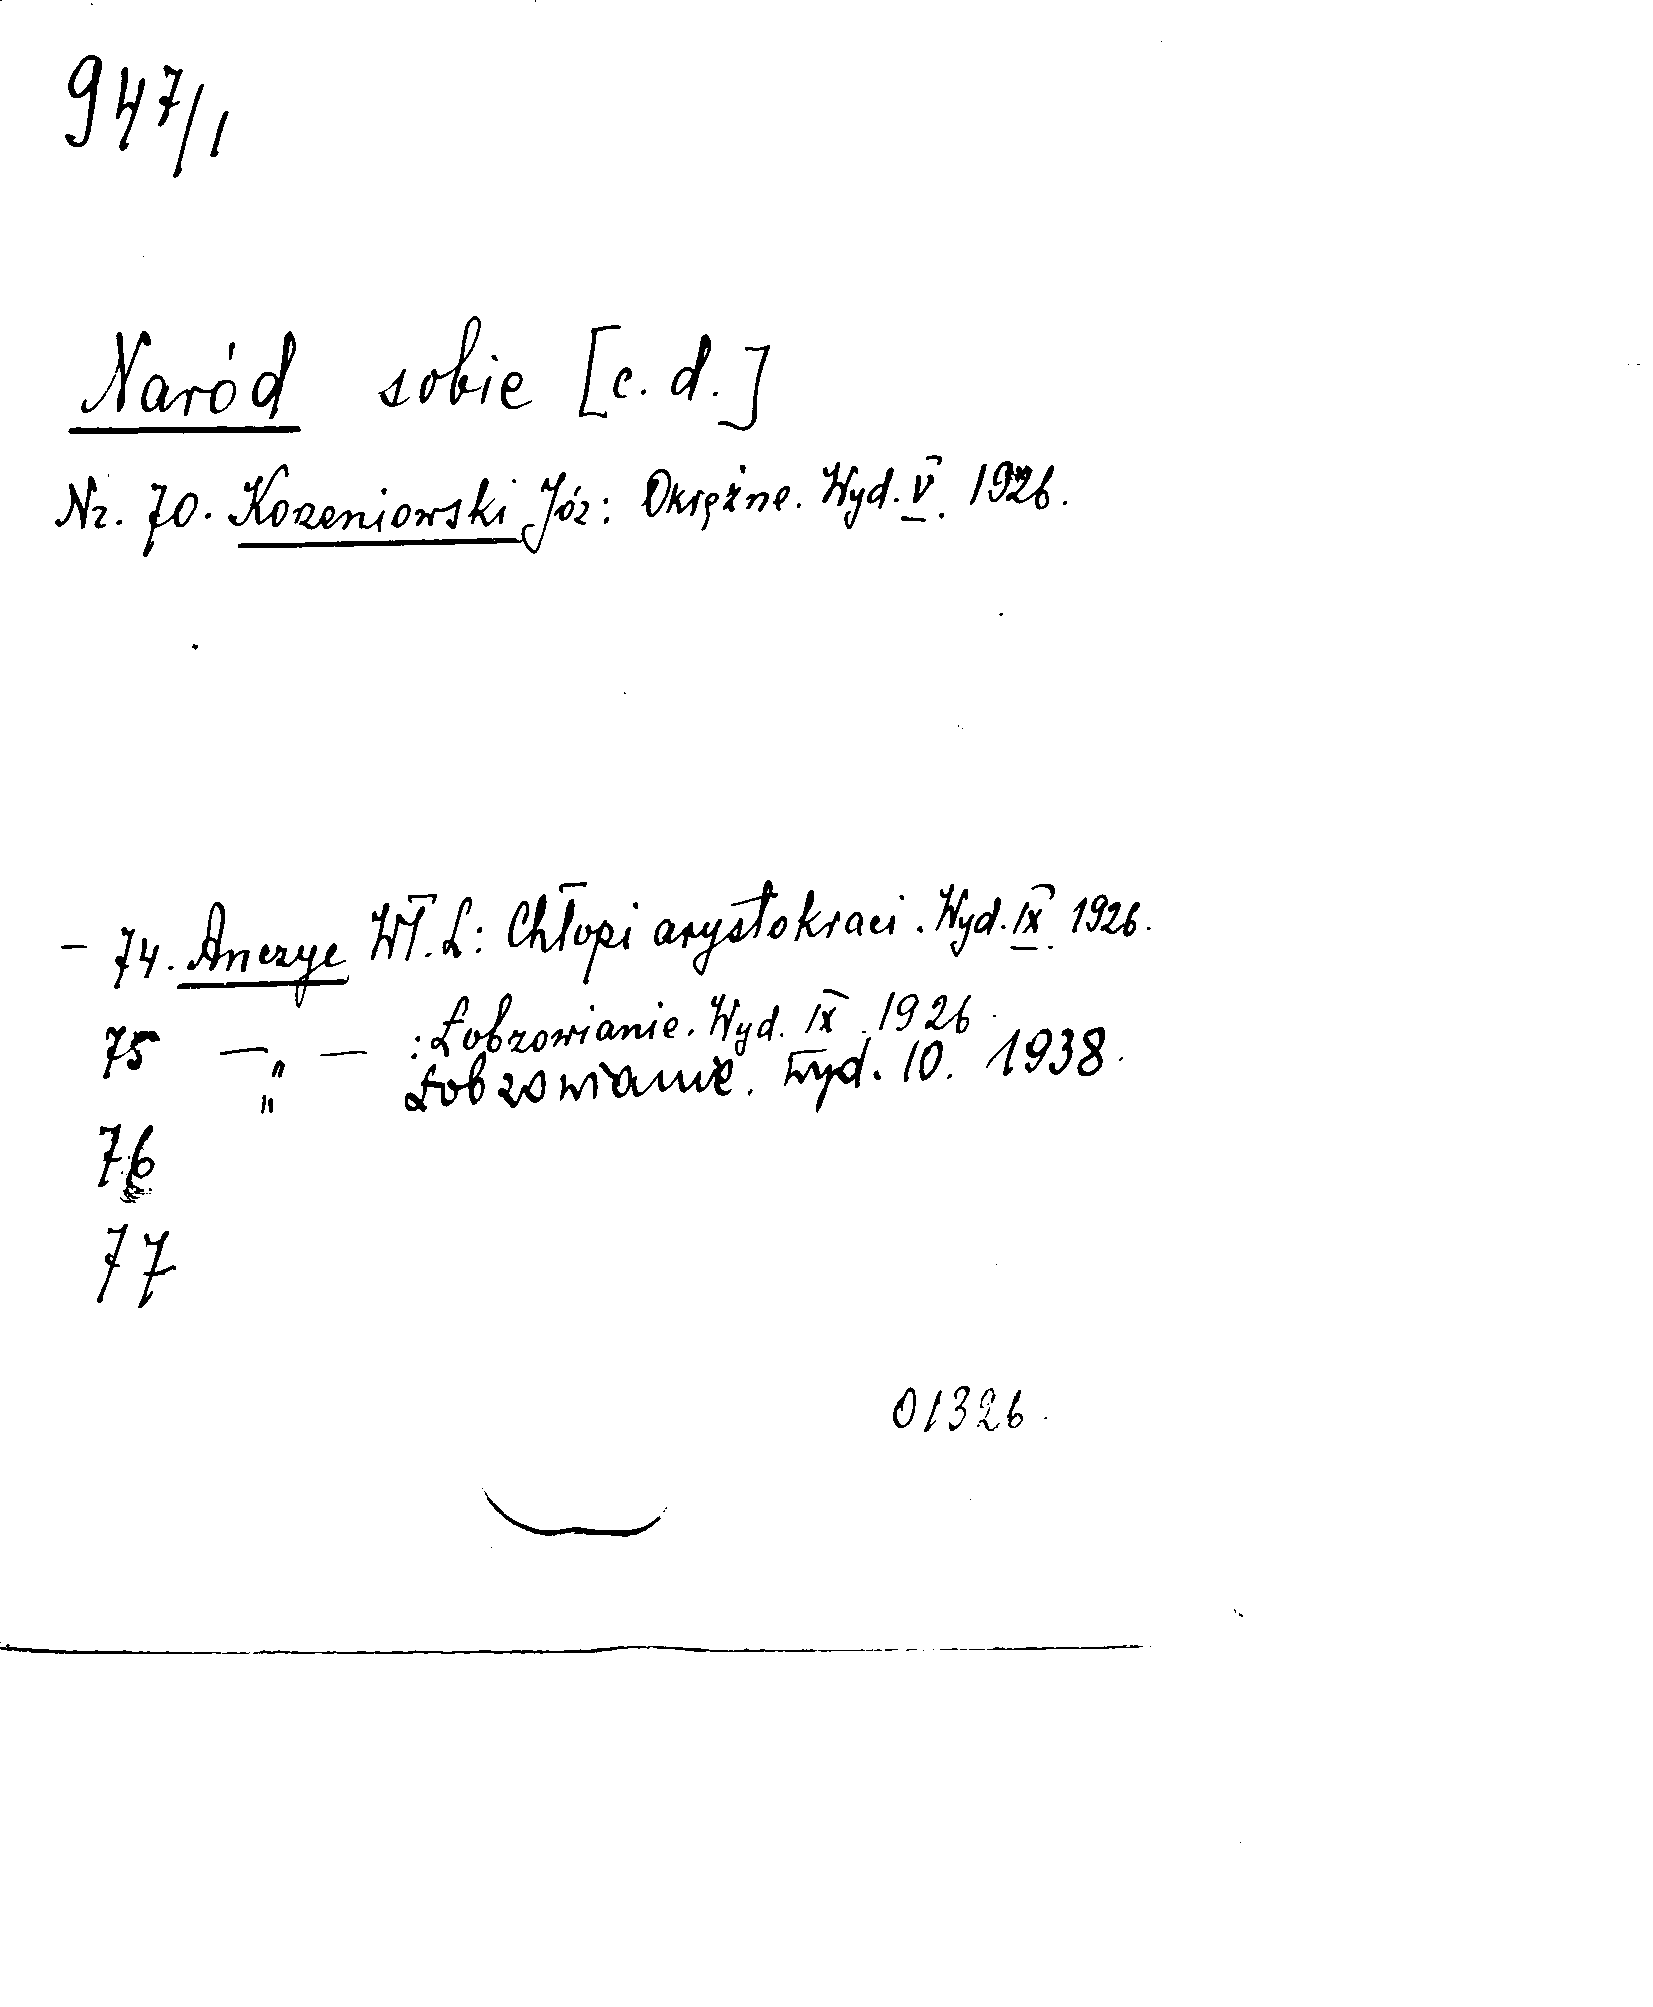 947/1
Naród sobie [c. d.]
Nr. 70. Korzeniowski Józ: Okrężne. Wyd. V. 1926.
- 74. Anczyc Wł. L: Chłopi arystokraci. Wyd. IX. 1926.
75 — „ — : Łobzowianie. Wyd. IX. 1926.
" Łobzowianie. Wyd. 10. 1938.
76
77
01326.